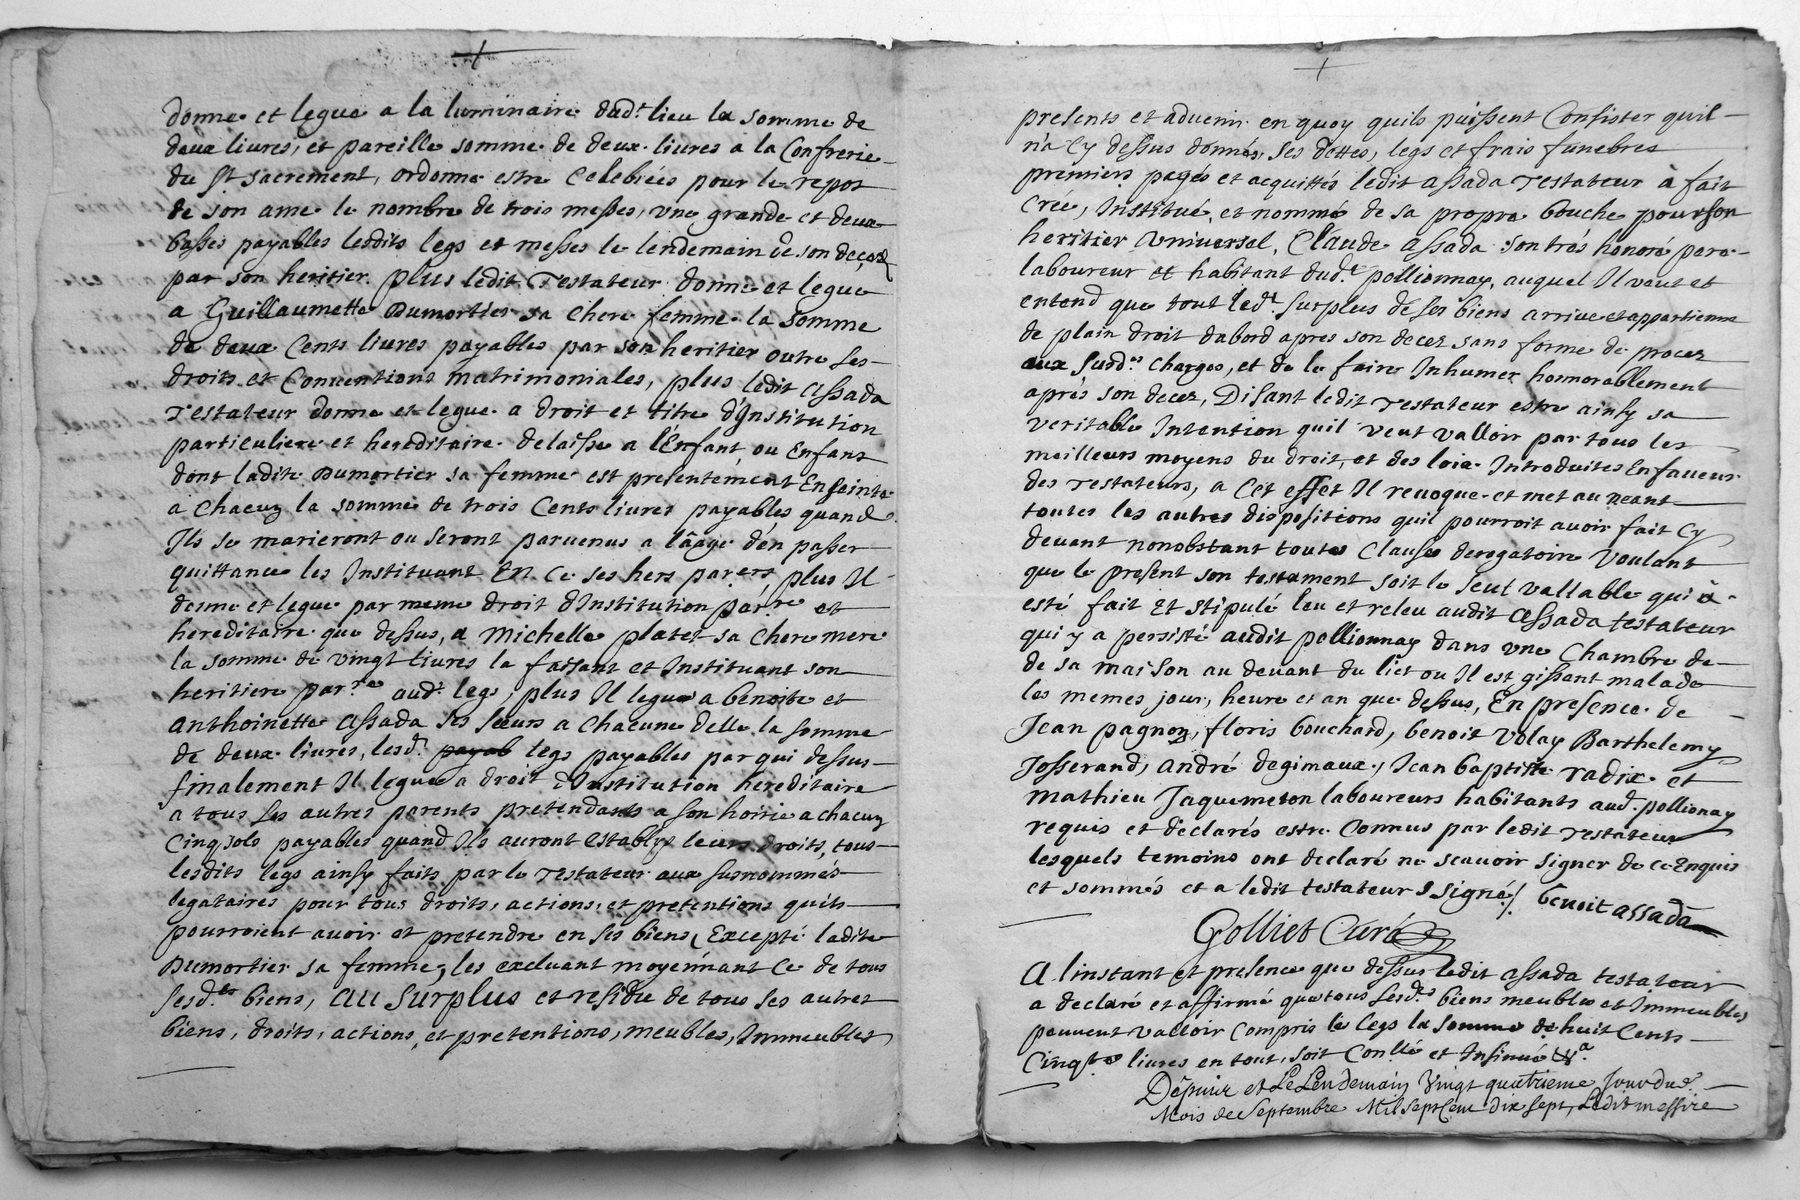 donne et legue a la luminaire dud.t lieu la somme de
deux liures, et pareille somme de deux liures a la Confrerie
du S.t sacrement, ordonne estre Celebrées pour le repos
de son ame le nombre de trois messes, vne grande et deux
basses payables lesdits legs et messes le lendemain de son decez
par son heritier. plus ledit Testateur donne et legue
a Guillaumette Dumortier sa chere femme la somme
de deux Cents liures payables par son heritier outre ses
droits et Conuentions matrimoniales, plus ledit assada
Testateur donne et legue a droit et titre d'Institution
particuliere et hereditaire delaisse a l'Enfant, ou Enfans
dont ladite Dumortier sa femme est presentement Enseinte
a chacun la somme de trois Cents liures payables quand
Ils se marieront ou seront paruenus a l'âage d'en passer
quittance les Instituant En Ce ses hers par.ers plus Il
donne et legue par meme droit d'Institution par.re et
hereditaire que dessus, a michelle platet sa chere mere
la somme de vingt liures la faisant et Instituant son
heritiere par.re aud.t legs, plus Il legue a benoite et
anthoinette assada ses sœurs a chacune d'elle la somme
de deux liures, lesd.ts payab legs payables par qui dessus
finalement Il legue a droit d'Institution hereditaire
a tous ses autres parents pretendants a son hoirie a chacun
Cinq sols payables quand Ils auront establys leurs droits, tous
lesdits legs ainsy faits par le Testateur aux susnommés
legataires pour tous droits, actions, et pretentions quils
pourroient auoir et pretendre en ses biens, Excepté ladite
Dumortier sa femme, les excluant moyennant Ce de tous
sesd.ts biens, au surplus et residu de tous ses autres
biens, droits, actions, et pretentions, meubles, Immeubles
presents et aduenir en quoy quils puissent Consister quil
n'a Cy dessus donnés, ses dettes, legs et frais funebres
premiers payes et acquittés ledit assada Testateur à fait
Créé, Institué, et nommé de sa propre bouche pour son
heritier vniuersel, Claude assada son trés honoré pere
laboureur et habitant dud.t pollionnay, auquel Il veut et
entend que tout led.t surplus de ses biens arriue et appartienne
de plain droit d'abord apres son decez sans forme de procez
aux susd.es charges, et de le faire Inhumer honnorablement
aprés son decez, Disant ledit Testateur estre ainsy sa
veritable Intention quil veut valloir par tous les
meilleurs moyens du droit, et des loix Introduites En faueur
des Testateurs, a Cet effet Il reuoque et met au neant
toutes les autres dispositions quil pourroit auoir fait Cy
deuant nonobstant toutes Clauses derogatoire voulant
que le present son testament soit le seul vallable qui à
esté fait et stipulé leu et releu audit assada testateur
qui y a persisté audit pollionnay dans vne Chambre de
de sa maison au deuant du lict ou Il est gissant malade
les memes jour, heure et an que dessus, En presence de
Jean pagnon, floris bouchard, benoit volay Barthelemy
Josserand, andré degimaux, Jean baptiste radix et
Mathieu Jaquemeton laboureurs habitants aud.t pollionay
requis et declarés estre Connus par ledit Testateur
lesquels temoins ont declaré ne scauoir signer de ce Enquis
et sommés et a ledit testateur signé /. benoit assada
Golliet Curé
a linstant et presence que dessus ledit assada testateur
a declaré et affirmé que tous sesd.ts biens meubles et Immeubles
peuuent valloir Compris le legs la somme de huit Cents
Cinq.te liures en tout, soit Con.llé et Insinué
Depuis et Le Lendemain Vingt quatrieme Jour dud.
Mois de Septembre Mil Sept Cent dix Sept, Ledit messire